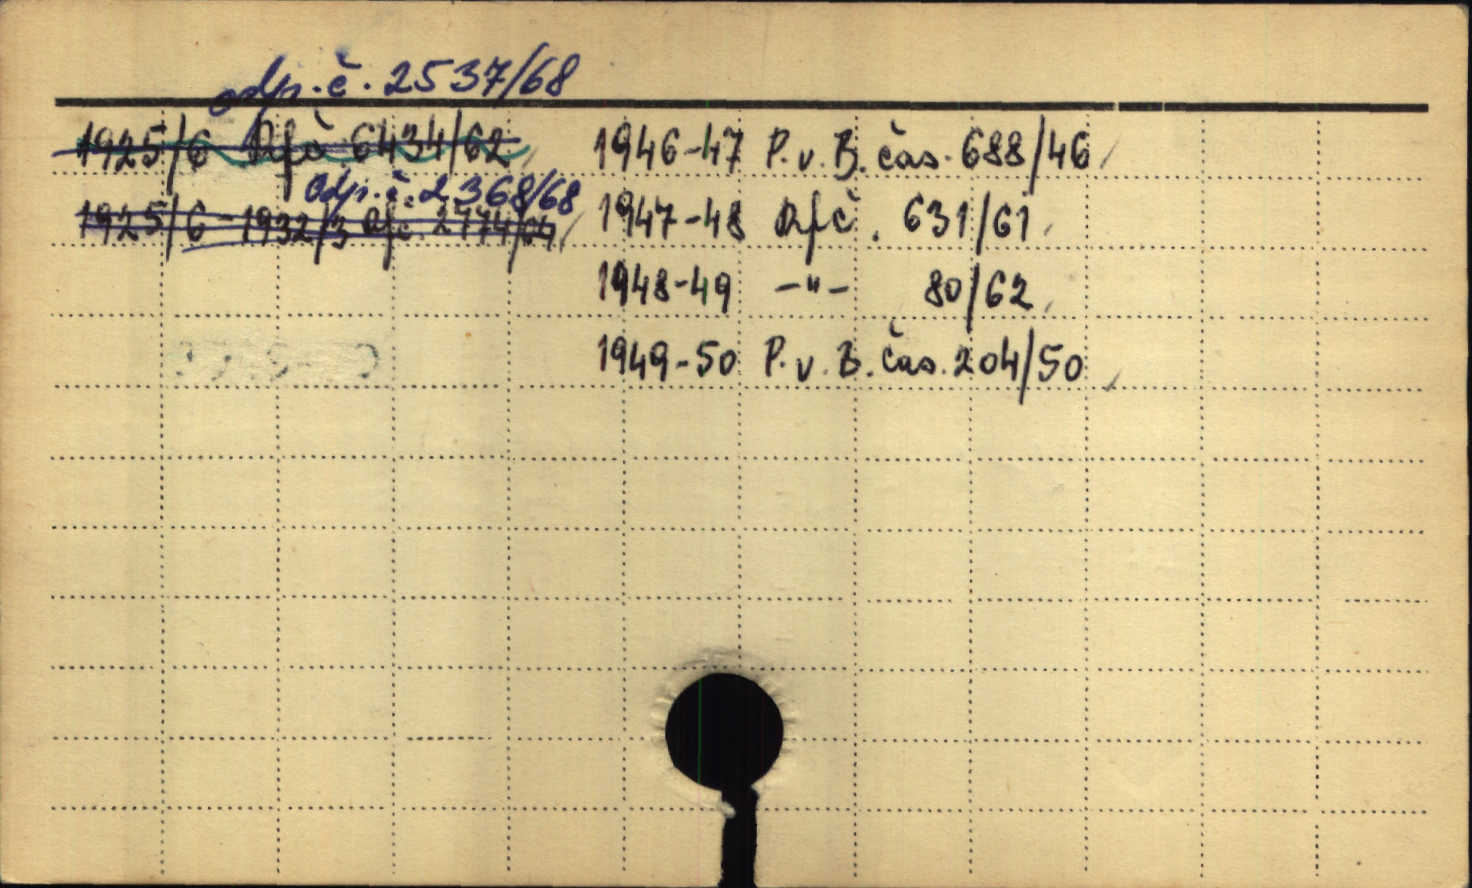 odp. č. 2537/68
1925/6 Dfč 6434/62
odp. č. 2368/68
1925/6-1932/3 Dfč. 2774/64
1946-47 P. v. B. čas. 688/46
1947-48 Dfč. 631/61
1948-49 -"- 80/62
1949-50 P. v. B. čas. 204/50